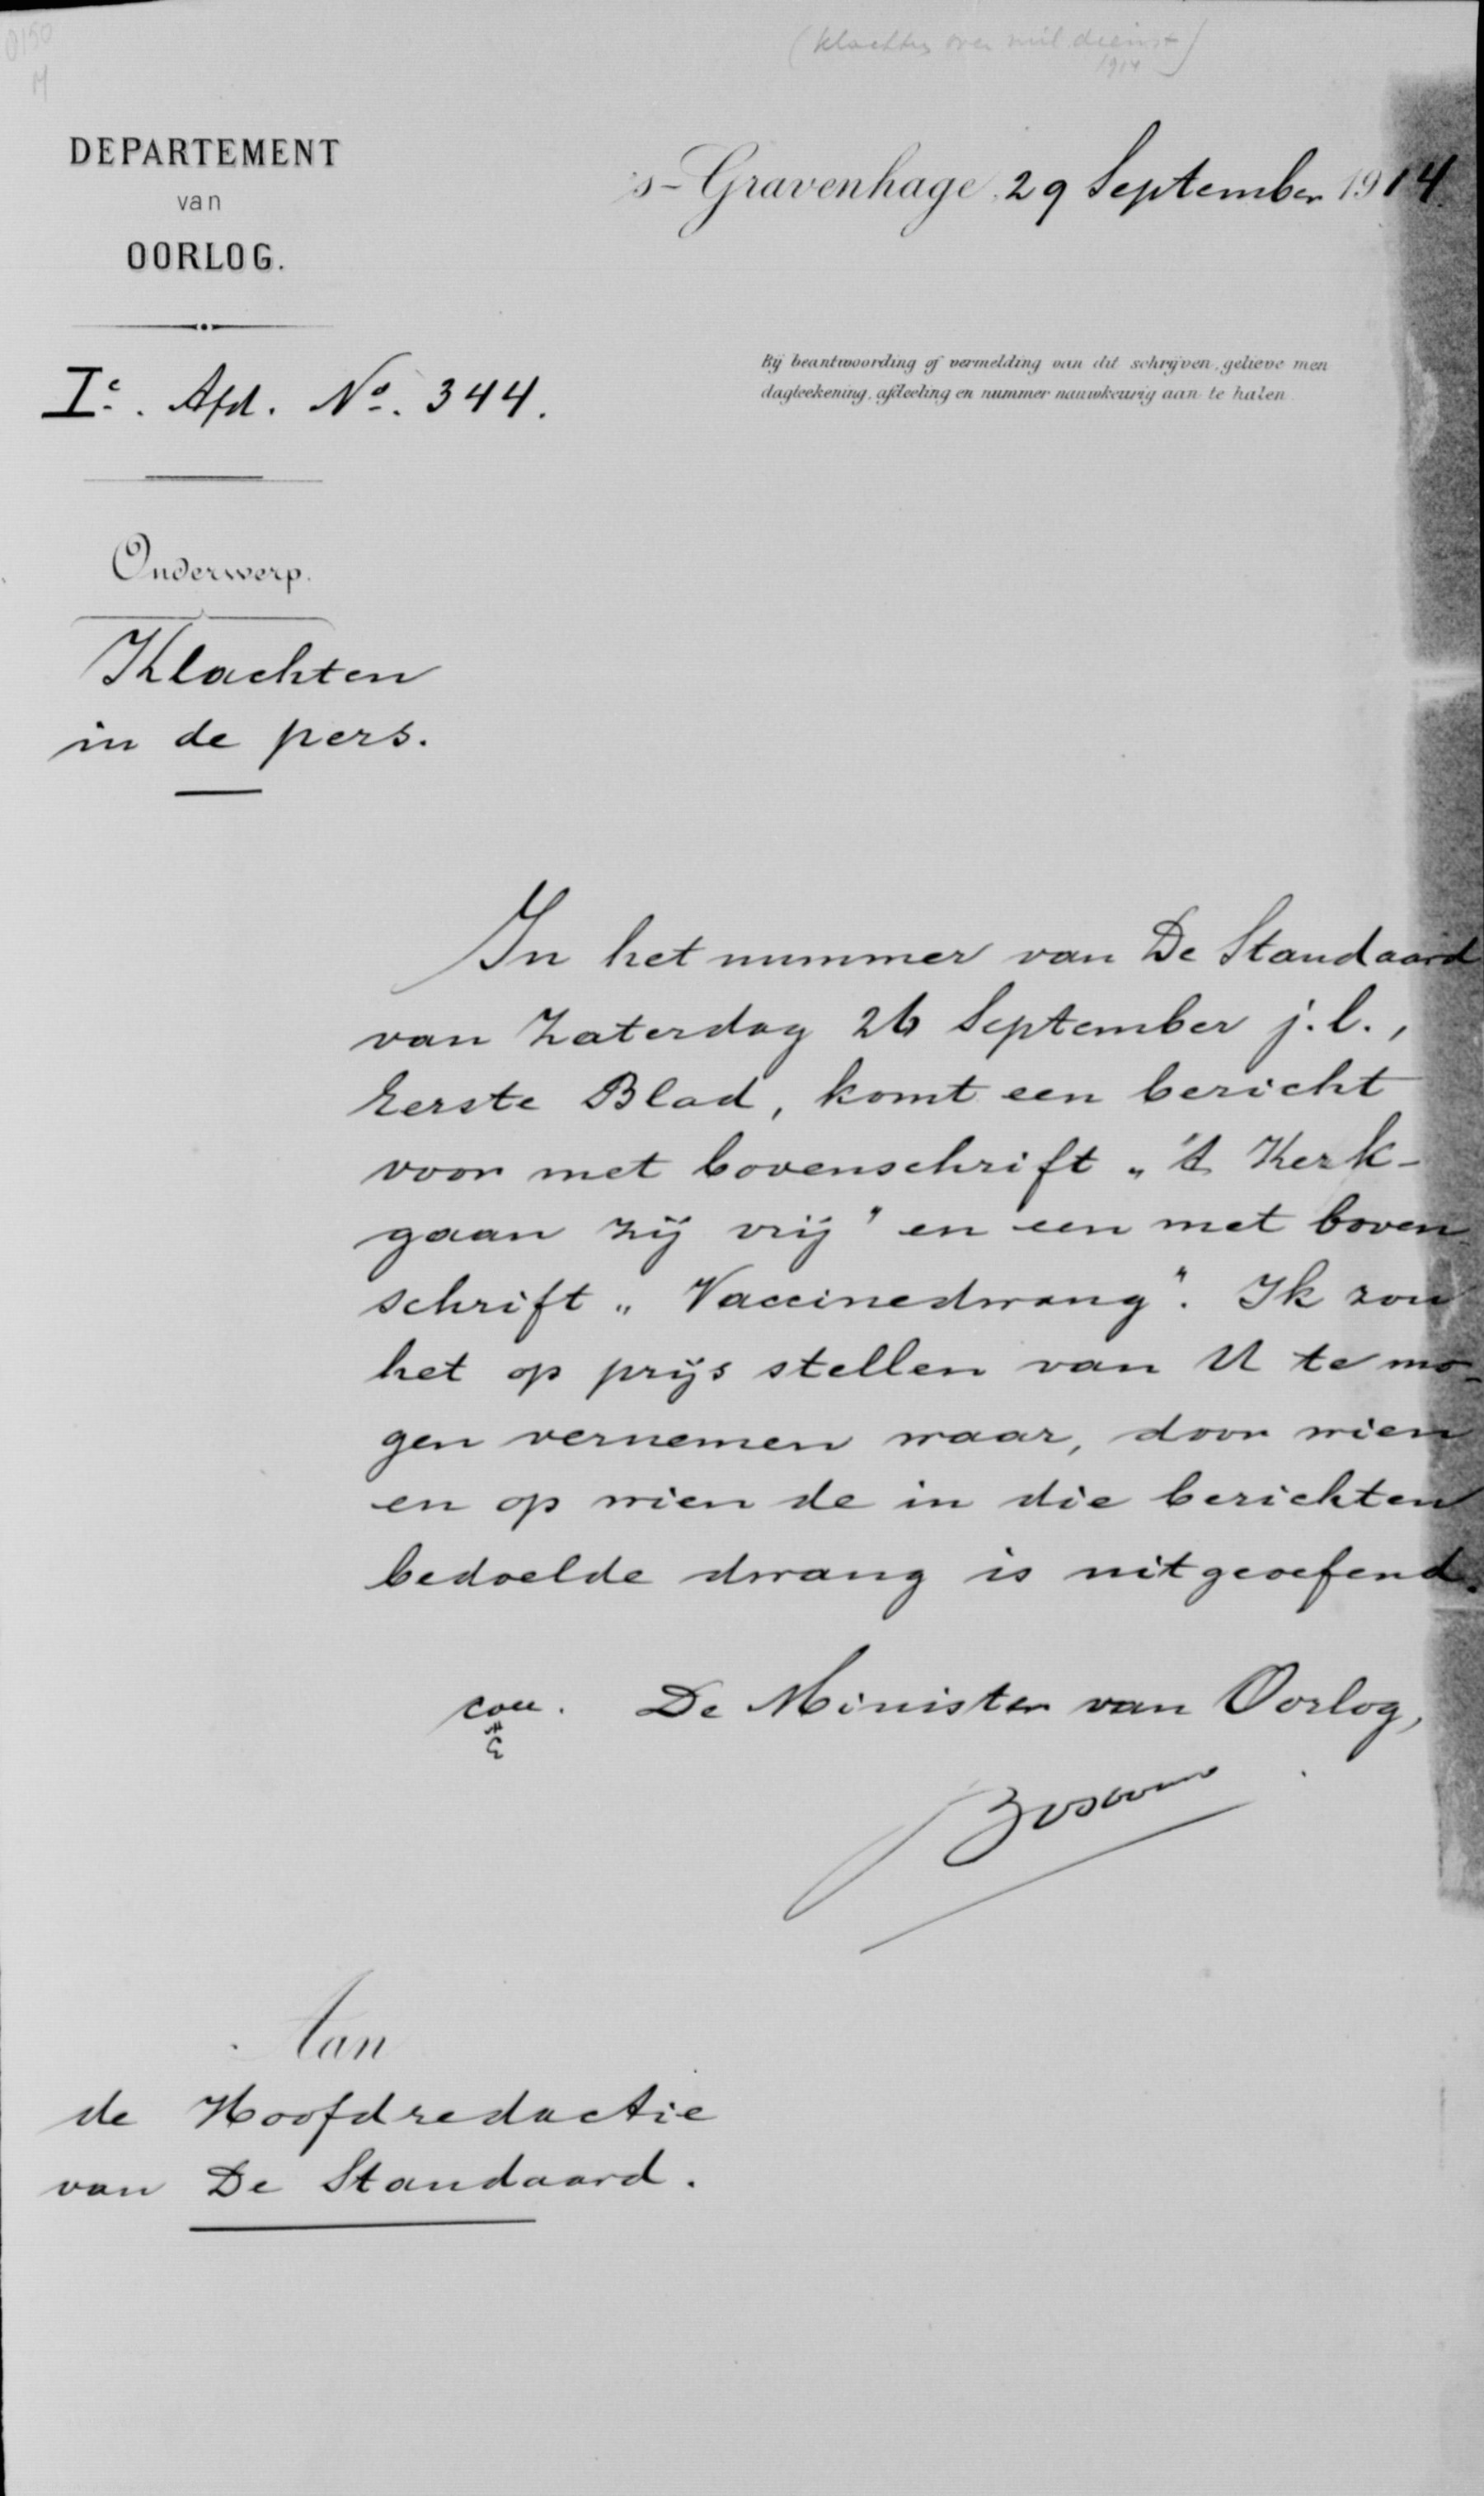 0150
M
(klachten over mil. dienst
1914)
DEPARTEMENT
van
OORLOG.
's-Gravenhage, 29 September 1914.
Bij beantwoording of vermelding van dit schrijven, gelieve men
dagteekening, afdeeling en nummer nauwkeurig aan te halen.
Ie. Afd. No. 344.
Onderwerp.
Klachten
in de pers.
In het nummer van De Standaard
van Zaterdag 26 September j.l.,
Eerste Blad, komt een bericht
voor met bovenschrift „'t Kerk-
gaan zij vrij" en een met boven-
schrift „Vaccinedwang". Ik zou
het op prijs stellen van U te mo-
gen vernemen waar, door wien
en op wien de in die berichten
bedoelde dwang is uitgeoefend.
De Minister van Oorlog,
Bosboom
Aan
de Hoofdredactie
van De Standaard.